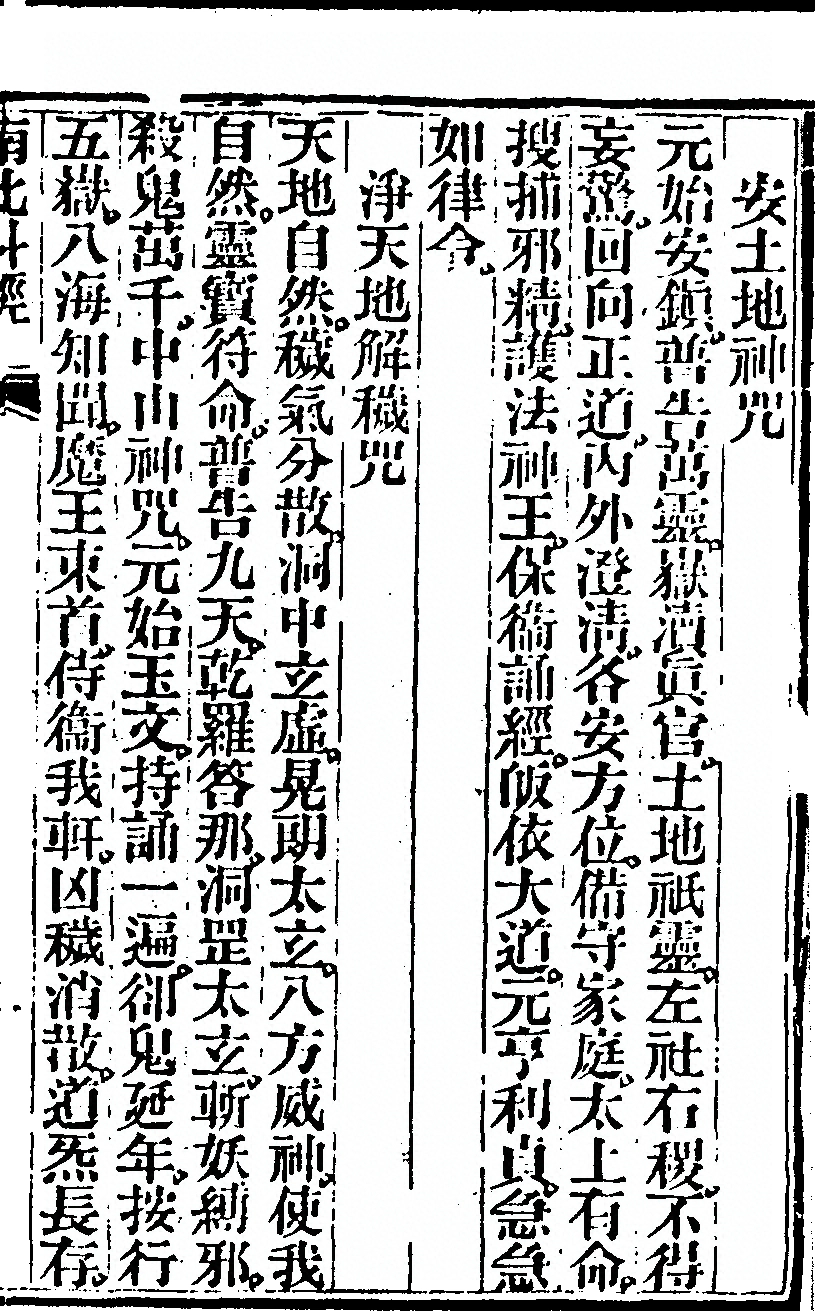 安土地神咒
元始安鎮。普告萬靈。嶽瀆眞官。土地祇靈。左社右稷。不得
妄驚。回向正道。內外澄清。各安方位。備守家庭。太上有命。
搜捕邪精。護法神王。保衞誦經。皈依大道。元亨利貞。急急
如律令。
淨天地解穢咒
天地自然。穢氣分散。洞中立虛。晃朗太立。八方威神。使我
自然。靈寶符命。普告九天。乾羅答那。洞罡太立。斬妖縛邪。
殺鬼萬千。中山神咒。元始玉文。持誦一遍。卻鬼延年。按行
五嶽。八海知聞。魔王束首。侍衞我軒。凶穢消散。道炁長存。
南北斗經